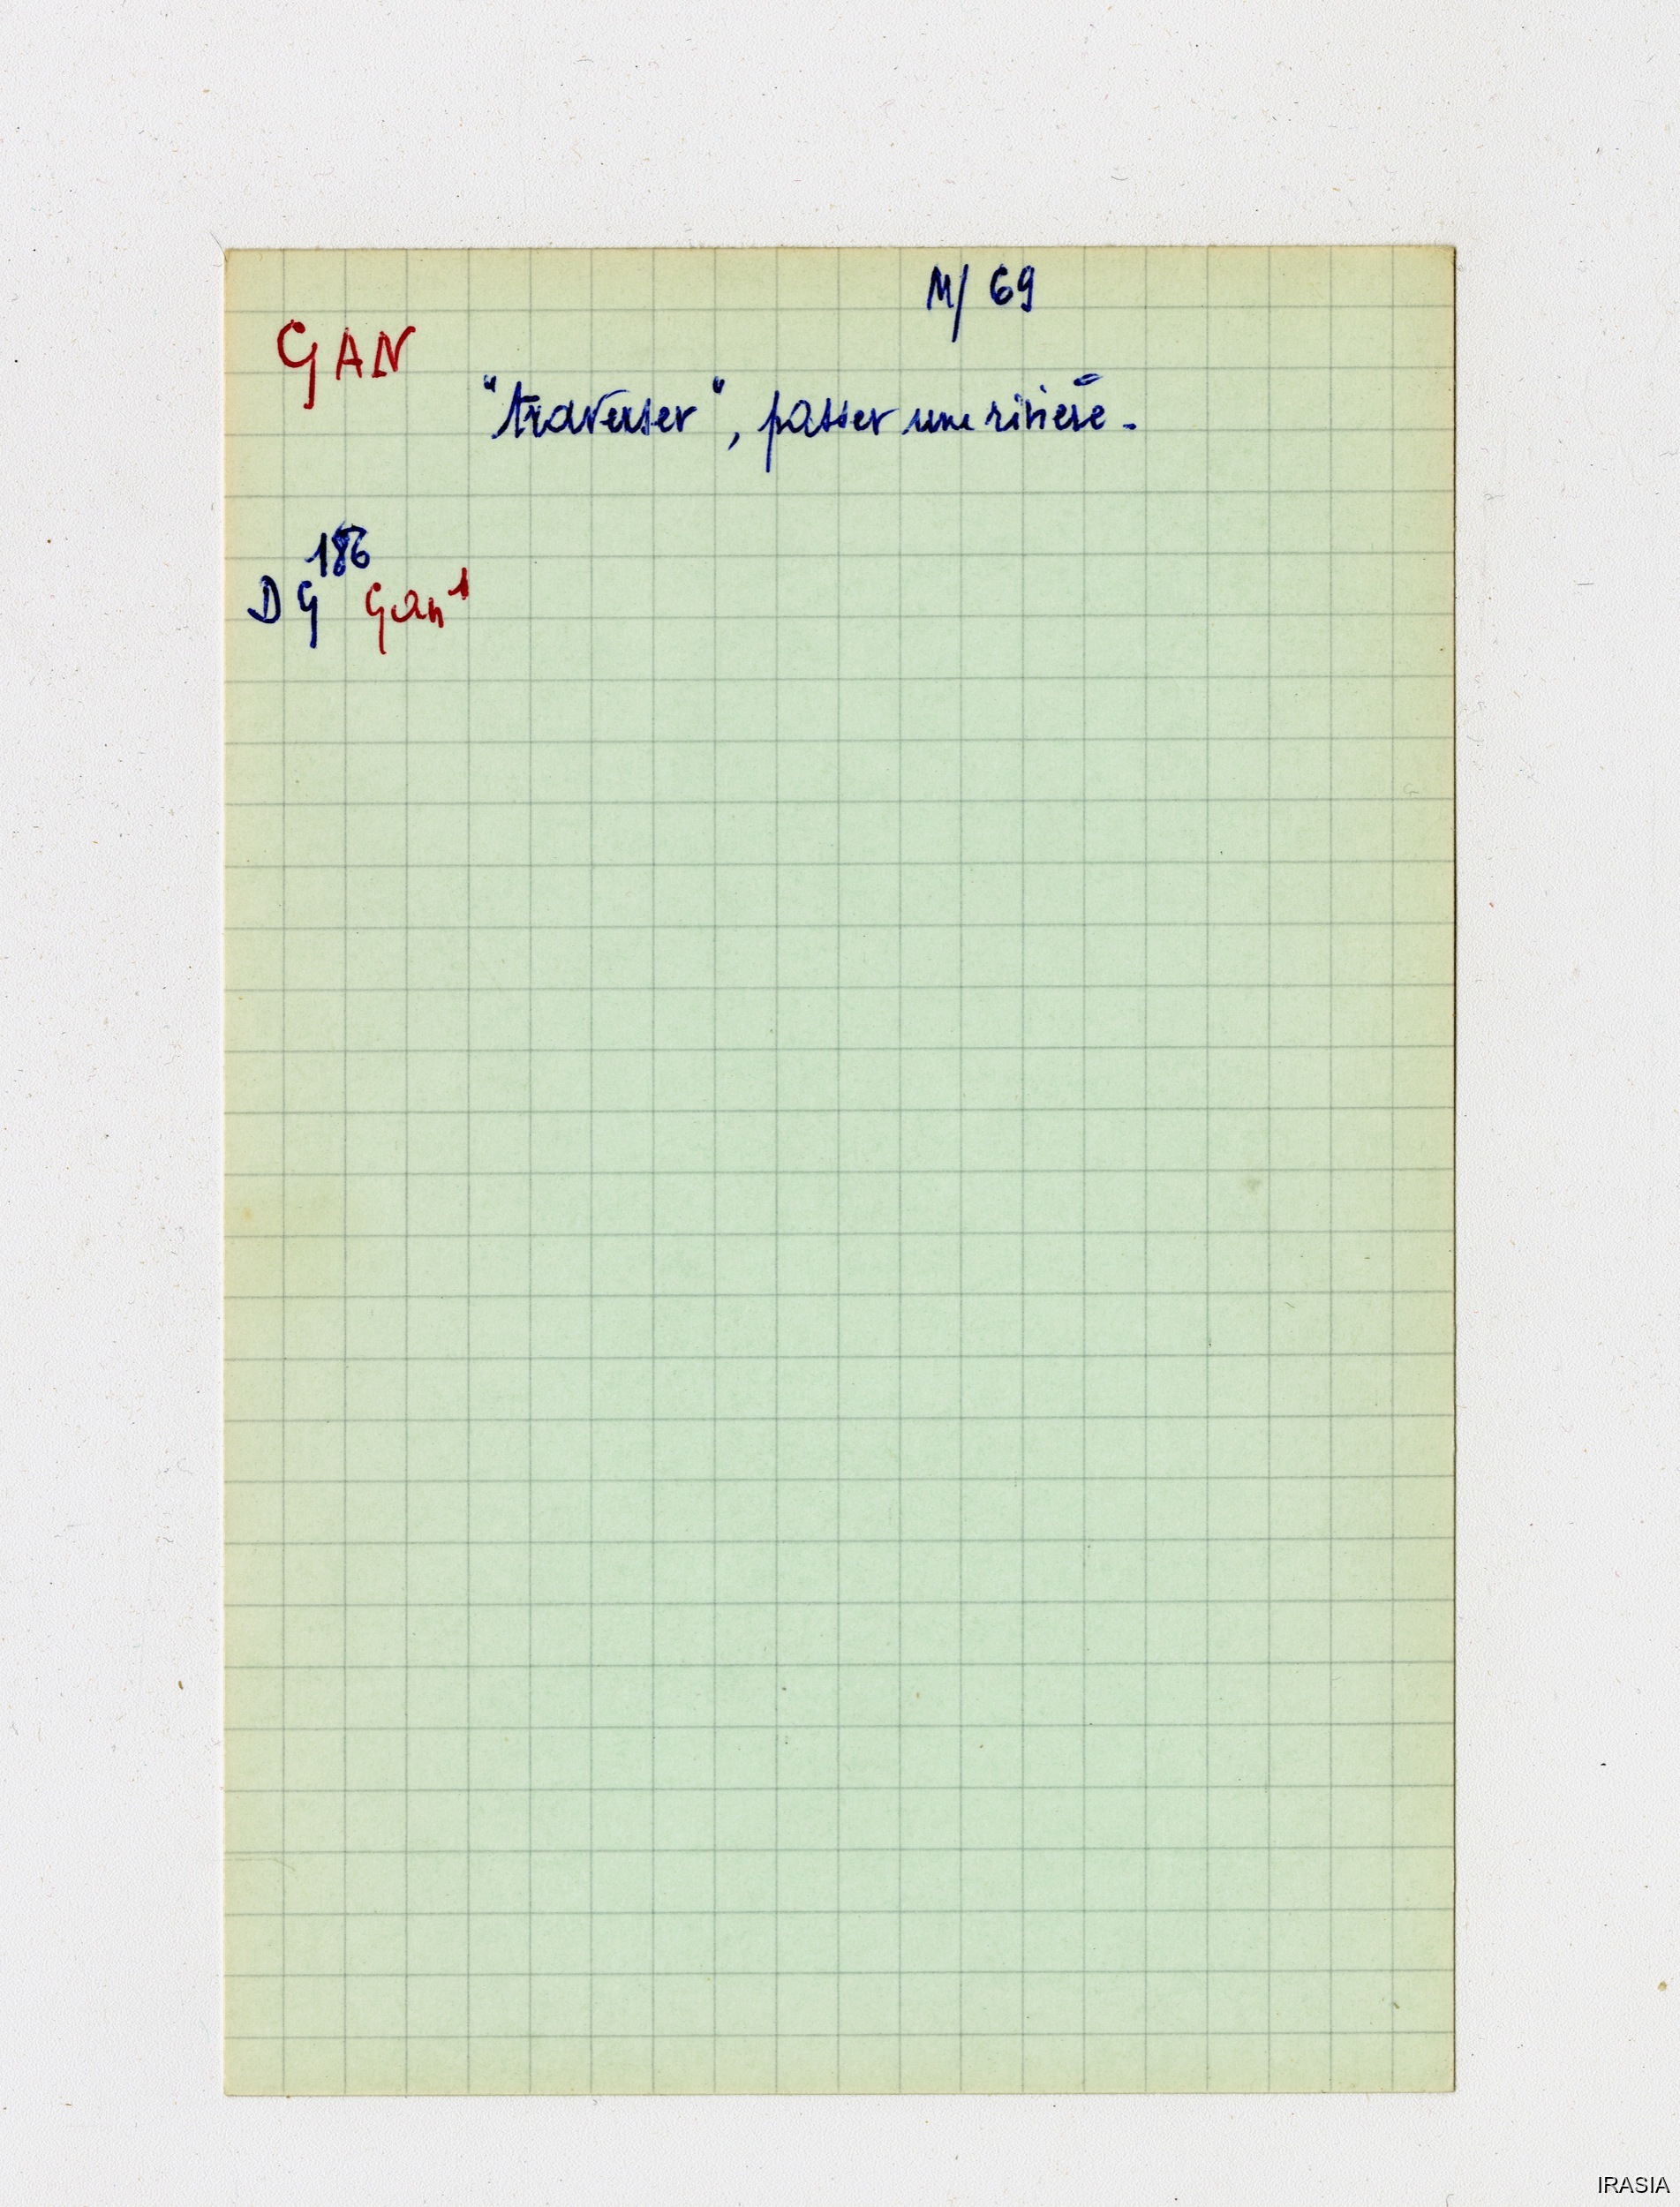 M/ 69
GAN
"traverser", passer une rivière.
186
DG Gan¹
IRASIA